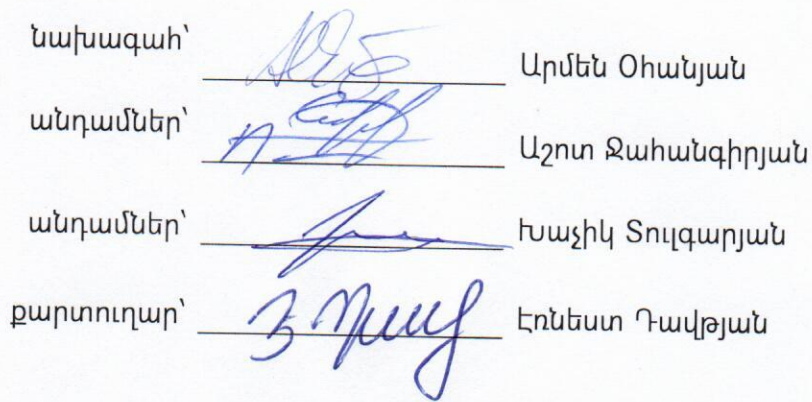 նախագահ՝ Արմեն Օհանյան
անդամներ՝ Աշոտ Ջահանգիրյան
անդամներ՝ Խաչիկ Տուլգարյան
քարտուղար՝ Էռնեստ Դավթյան